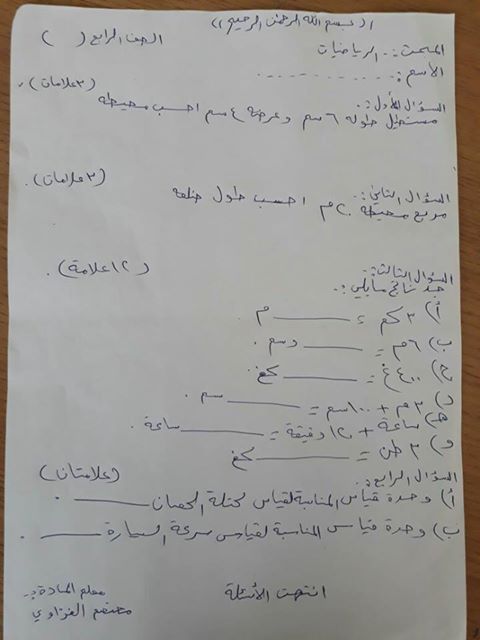 ((بسم الله الرحمن الرحيم))
المبحث:. الرياضيات الصف الرابع ( )
الأسم:. . . . . . . . . .
السؤال الأول:. (٣ علامات).
مستطيل طوله ٦ سم وعرضه ٤ سم احسب محيطه
السؤال الثاني:. (٣ علامات).
مربع محيطه ٢٠ م احسب طول ضلعه
السؤال الثالث:. (١٢ علامة).
جد ناتج ما يلي:.
أ) ٣ كم = ــــــ م
ب) ٦ م = ــــــ دسم.
ج) ٤٠٠٠ غ = ــــــ كغ
د) ٣ م + ١٠٠ سم = ــــــ سم.
هـ) ساعة + ١٢٠ دقيقة = ــــــ ساعة.
و) ٣ طن = ــــــ كغ
السؤال الرابع:. (علامتان)
أ) وحدة قياس المناسبة لقياس كتلة الحصان ــــــ.
ب) وحدة قياس المناسبة لقياس سرعة السيارة ــــــ.
انتهت الأسئلة
معلم المادة:.
معتصم